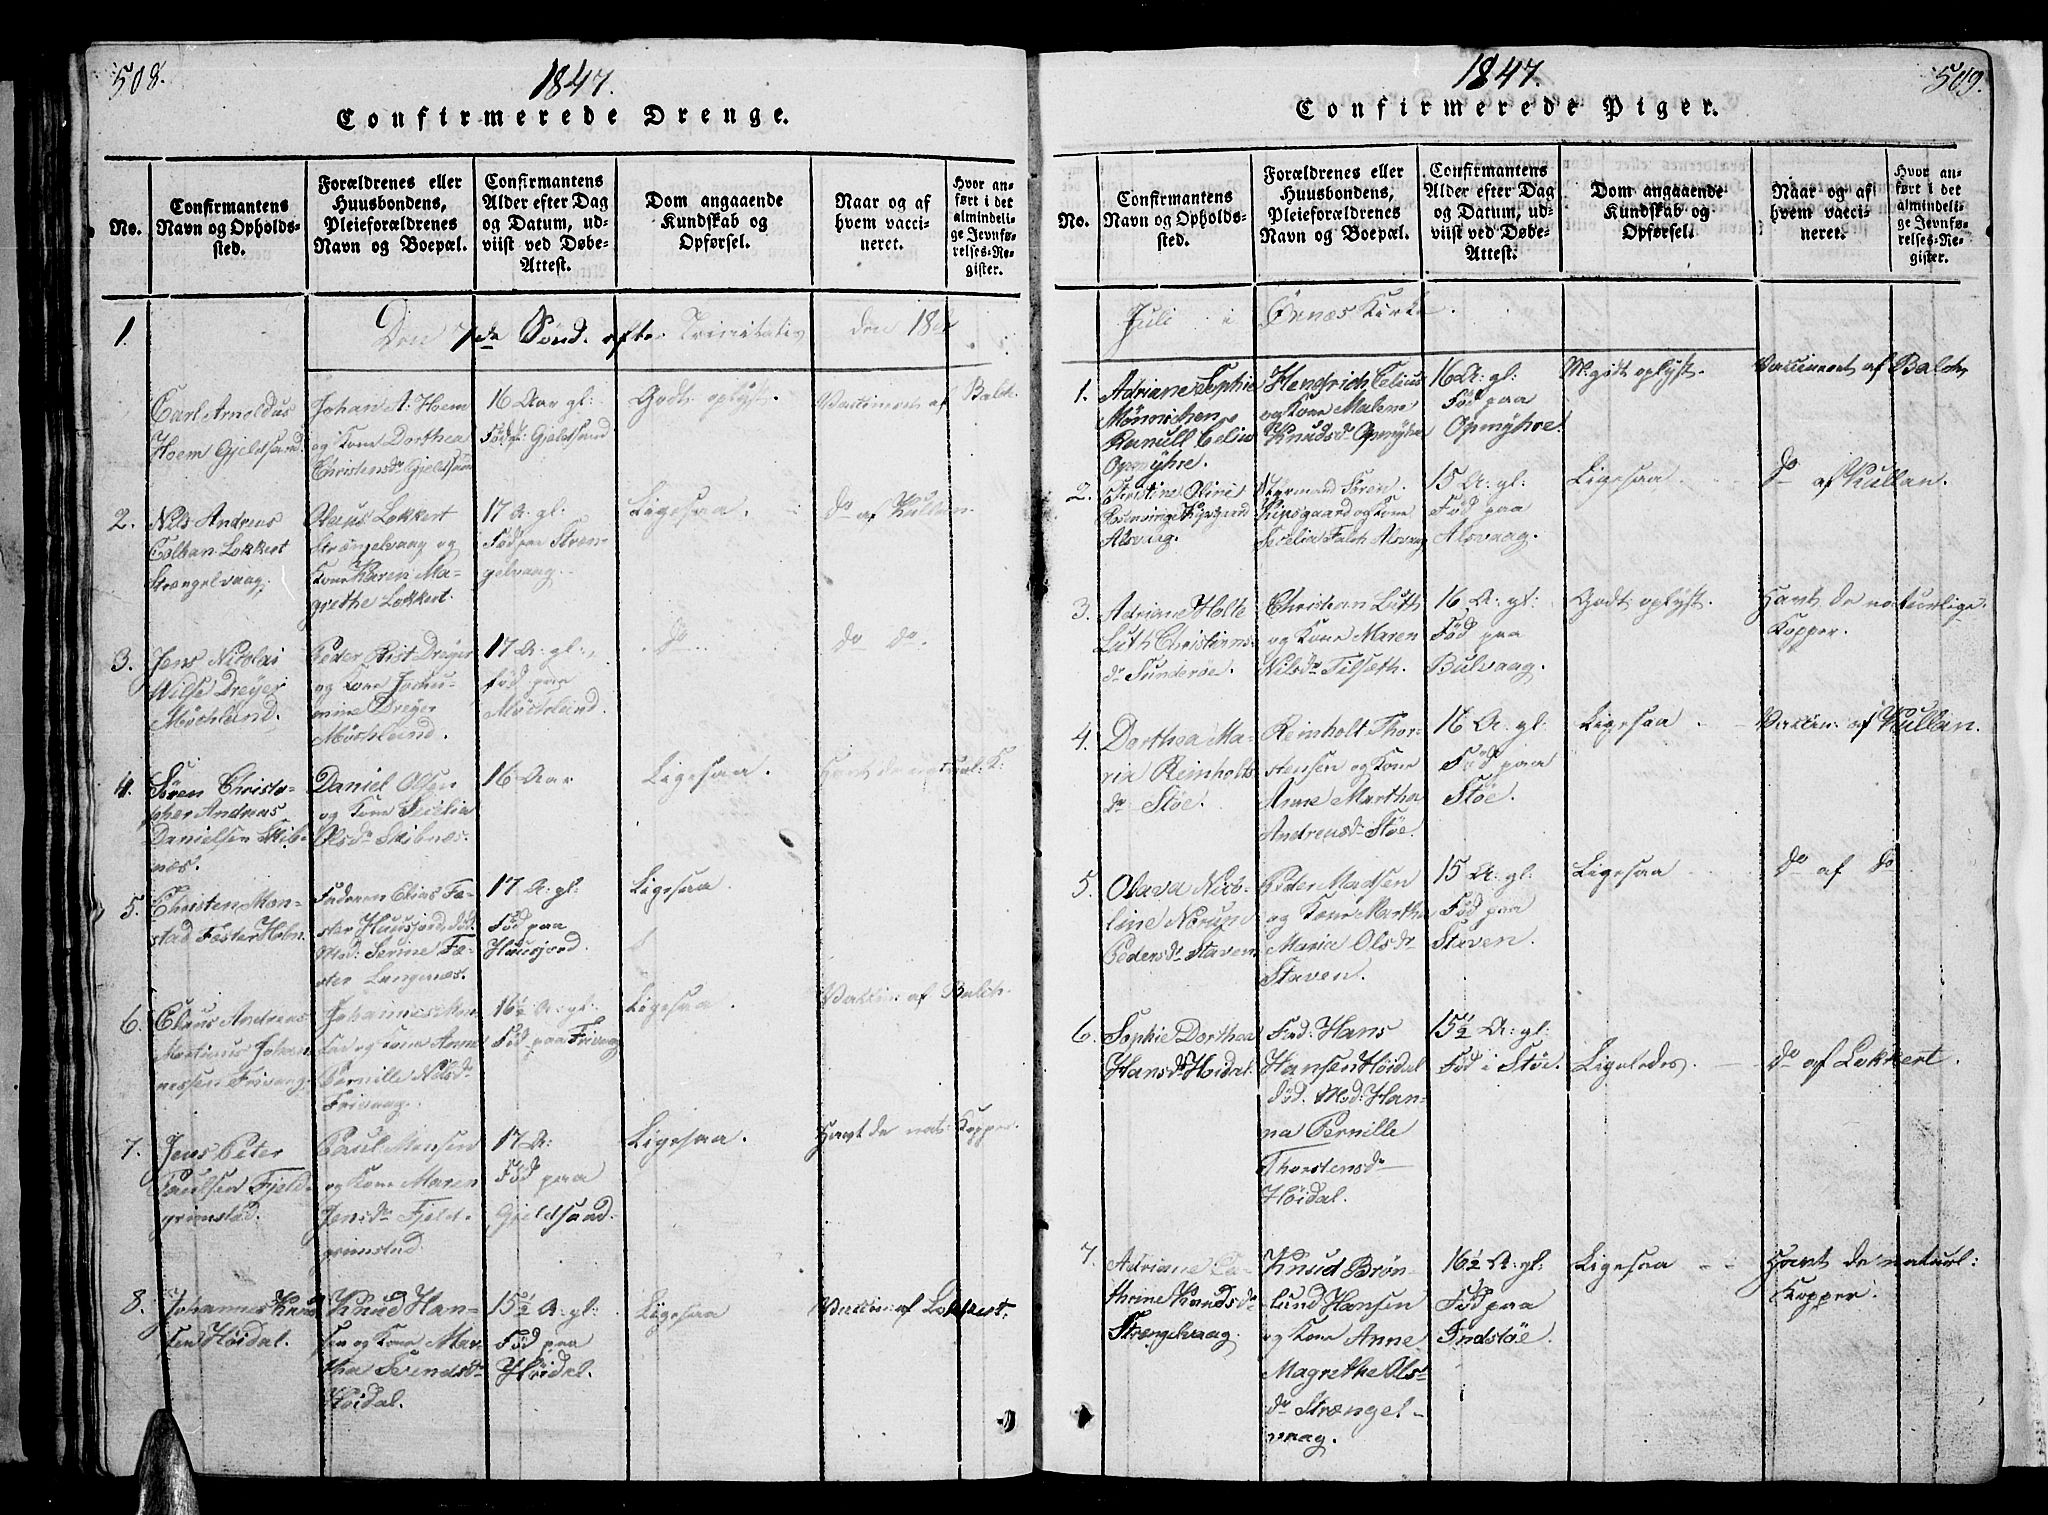 508.
1847.
Confirmerede Drenge.
No.
Confirmantens
Navn og Opholds-
sted.
Forældrenes eller
Huusbondens,
Pleieforældrenes
Navn og Boepæl.
Confirmantens
Alder efter Dag
og Datum, ud-
viist ved Døbe-
Attest.
Dom angaaende
Kundskab og
Opførsel.
Naar og af
hvem vacci-
neret.
Hvor an-
ført i det
almindeli-
ge Jevnfø-
relses-Re-
gister.
1.
Den 7de Sønd. efter Trinitatis den 18de
Carl Arnoldus
Hoem Gjeldsand.
Johan A. Hoem
og Kone Dorthea
Christensdr Gjeldsand
16 Aar gl:
Født: Gjeldsand
Godt oplyst.
Vaccineret af Balch.
2.
Nils Andreas
Colban Lokkert
Strængelvaag.
Olaus Lokkert
Strængelvaag og
Kone Karen Ma-
grethe Lokkert.
17 A: gl:
Fød paa Stræn-
gelvaag.
Ligesaa.
do af Kullan.
3.
Jens Nicolai
Wilse Dreyer
Møchland.
Peder Rist Dreyer
og Kone Jochu-
mine Dreyer
Møchland.
17 A: gl:
fød paa
Møchland.
do
do do.
4.
Søren Christo-
pher Andreas
Danielsen Skib-
næs.
Daniel Olsen
og Kone Secilia
Olsdr Skibnæs.
16 Aar
Ligesaa.
Havt de natural: K:
5.
Christen Mon-
stad Fester Holm.
Faderen Elias Fæ-
ster Huusjord, død.
Mod: Serine Fæ-
ster Langenæs.
17 A: gl:
Fød paa
Huusjord.
Ligesaa.
6.
Claus Andreas
Martinus Johan-
nessen Frivaag.
Johannes
og Kone Anne
Pernille Nilsdr
Frivaag.
16½ A: gl:
Fød paa Frivaag
Ligesaa.
Vaccin: af Balch.
7.
Jens Peter
Paulsen Fjeld-
grimstad.
Paul Monsen
og Kone Maren
Jensdr Fjeld-
grimstad
17 A:
Fød paa
Gjeldsaand.
Ligesaa.
Havt de nat: Kopper.
8.
Johannes Knud-
sen Høidal.
Knud Han-
sen og Kone Mar-
tha Svendsdr
Høidal.
15½ A: gl:
Fød paa
Høidal.
Ligesaa
Vaccin: af Lokkert.
1847.
509.
Confirmerede Piger.
No.
Confirmantens
Navn og Opholds-
sted.
Forældrenes eller
Huusbondens,
Pleieforældrenes
Navn og Boepæl.
Confirmantens
Alder efter Dag
og Datum, ud-
viist ved Døbe-
Attest.
Dom angaaende
Kundskab og
Opførsel.
Naar og af
hvem vacci-
neret.
Hvor an-
ført i det
almindelig-
ge Jevnfø-
relses-Re-
gister.
Juli i Øxnæs Kirke.
1.
Adriane Sophie
Mønnichen
Ranull Celius
Opmyhre.
Hendrich Celius
og Kone Malene
Knudsdr Opmyhre
16 A: gl:
Fød paa
Opmyhre.
M: godt oplyst.
Vaccineret af Balch,
2.
Christine Oline
Rosenvinge Kipsgaard
Alsvaag.
Styrmand Søren
Kipsgaard og Kone
Secelia Falch Alsvaag
15 A: gl:
Fød paa
Alsvaag.
Ligesaa.
do af Kullan.
3.
Adriane Holte
Luth Christians-
dr Sunderøe.
Christian Luth
og Kone Maren
Nilsdr Tilseth.
16 A: gl:
Fød paa
Bulvaag.
Godt oplyst.
Havt de naturlige
Kopper.
4.
Dorthea Ma-
ria Reinholts-
dr Støe.
Reinholt Thor-
stensen og Kone
Anne Martha
Andreasdr Støe.
16 A: gl:
Fød paa
Støe.
Ligesaa
Vaccin: af Kullan.
5.
Olava Nico-
line Norum
Pedersdr Staven
Peder Madsen
og Kone Martha
Maria Olsdr
Staven.
15 A: gl:
Fød paa
Staven.
Ligesaa
do af do
6.
Sophie Dorthea
Hansdr Høidal.
Fad: Hans
Hansen Høidal
død. Mod: Han-
na Pernille
Thorstensdr
Høidal.
15½ A: gl:
Fød i Støe.
Ligeledes.
do af Lokkert.
7.
Adriane Ca-
thrine Knudsdr
Strængelvaag.
Knud Brøn-
lund Hansen
og Kone Anne
Magrethe Ols-
dr Strængel-
vaag.
16½ A: gl:
Fød paa
Indstøe.
Ligesaa
Havt de naturl:
Kopper.